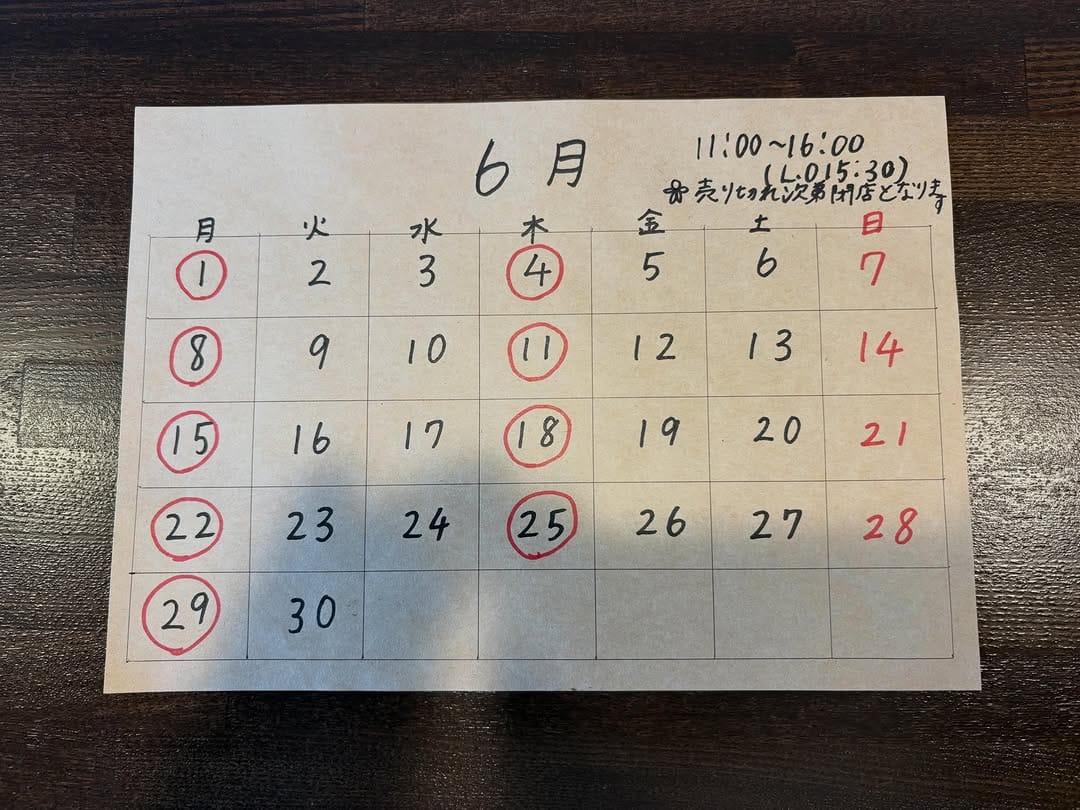 6月
11:00〜16:00
(L.O15:30)
※売り切れ次第閉店となります
月 火 水 木 金 土 日
1 2 3 4 5 6 7
8 9 10 11 12 13 14
15 16 17 18 19 20 21
22 23 24 25 26 27 28
29 30